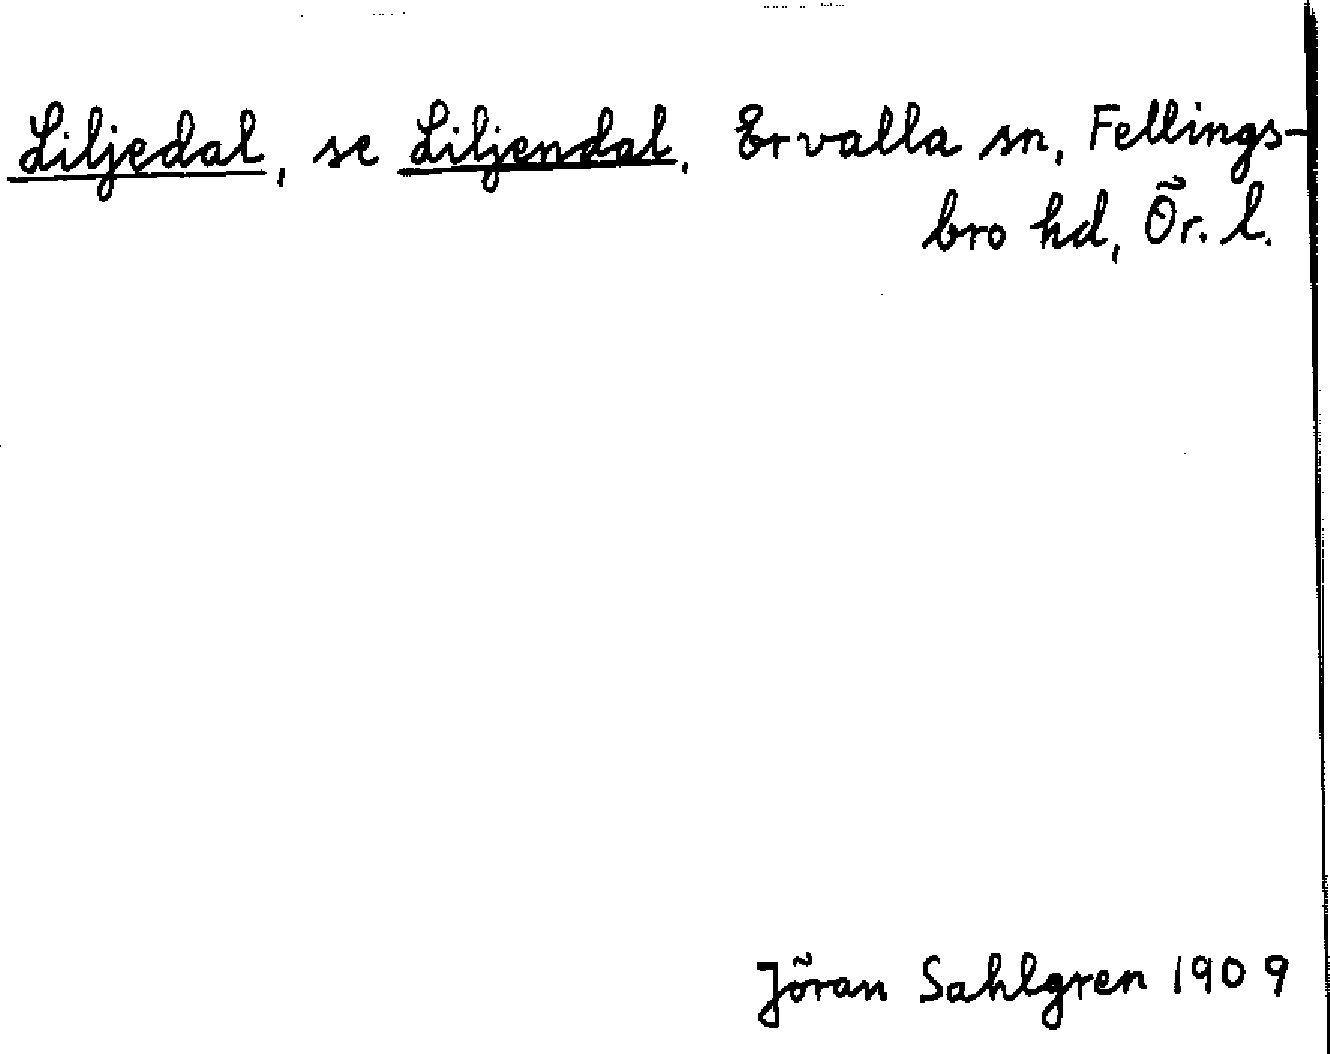 Liljedal, se Liljendal, Ervalla sn, Fellings-
bro hd, Ör. l.
Jöran Sahlgren 1909